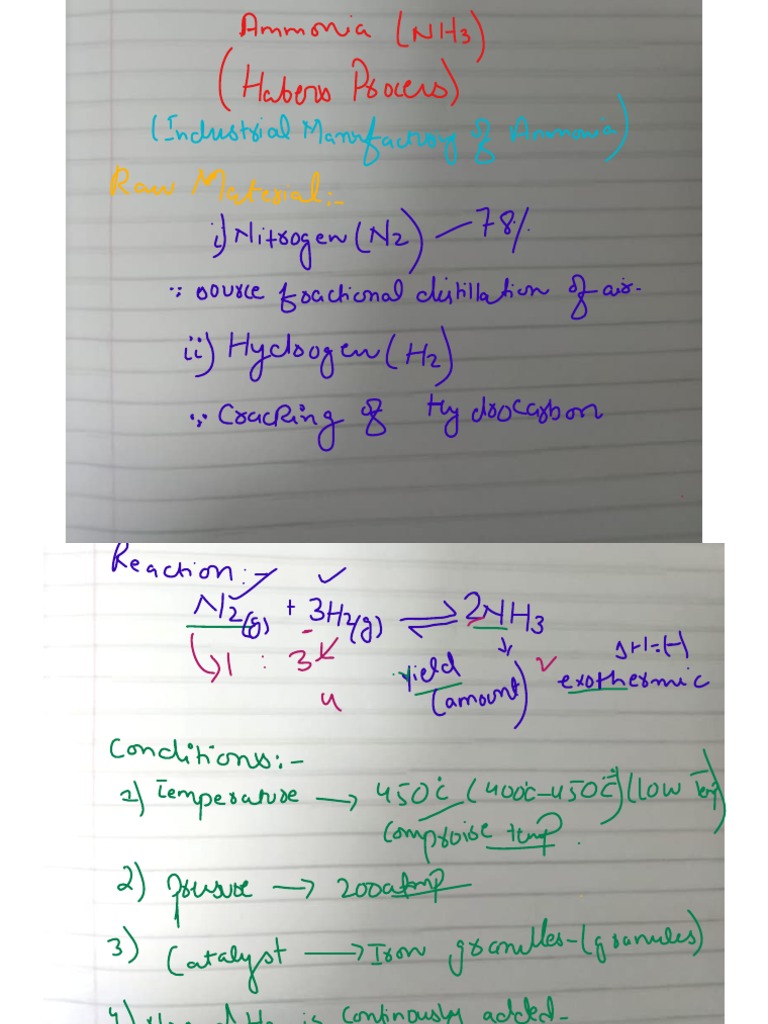 Ammonia (NH3)
(Habers Process)
(Industrial Manufacturing of Ammonia)
Raw Material:-
i) Nitrogen (N2) — 78%
∵ source fractional distillation of air.
ii) Hydrogen (H2)
∵ Cracking of Hydrocarbon
Reaction:-
N2(g) + 3H2(g) ⇌ 2NH3
1 : 3
4
yield (amount)
ΔH=(-)
exothermic
Conditions:-
1) Temperature → 450°C (400°C-450°C) (low Temp)
Comproise temp.
2) → 200atmp
3) Catalyst → Iron granulles-(granules)
4) H2 is continously added-